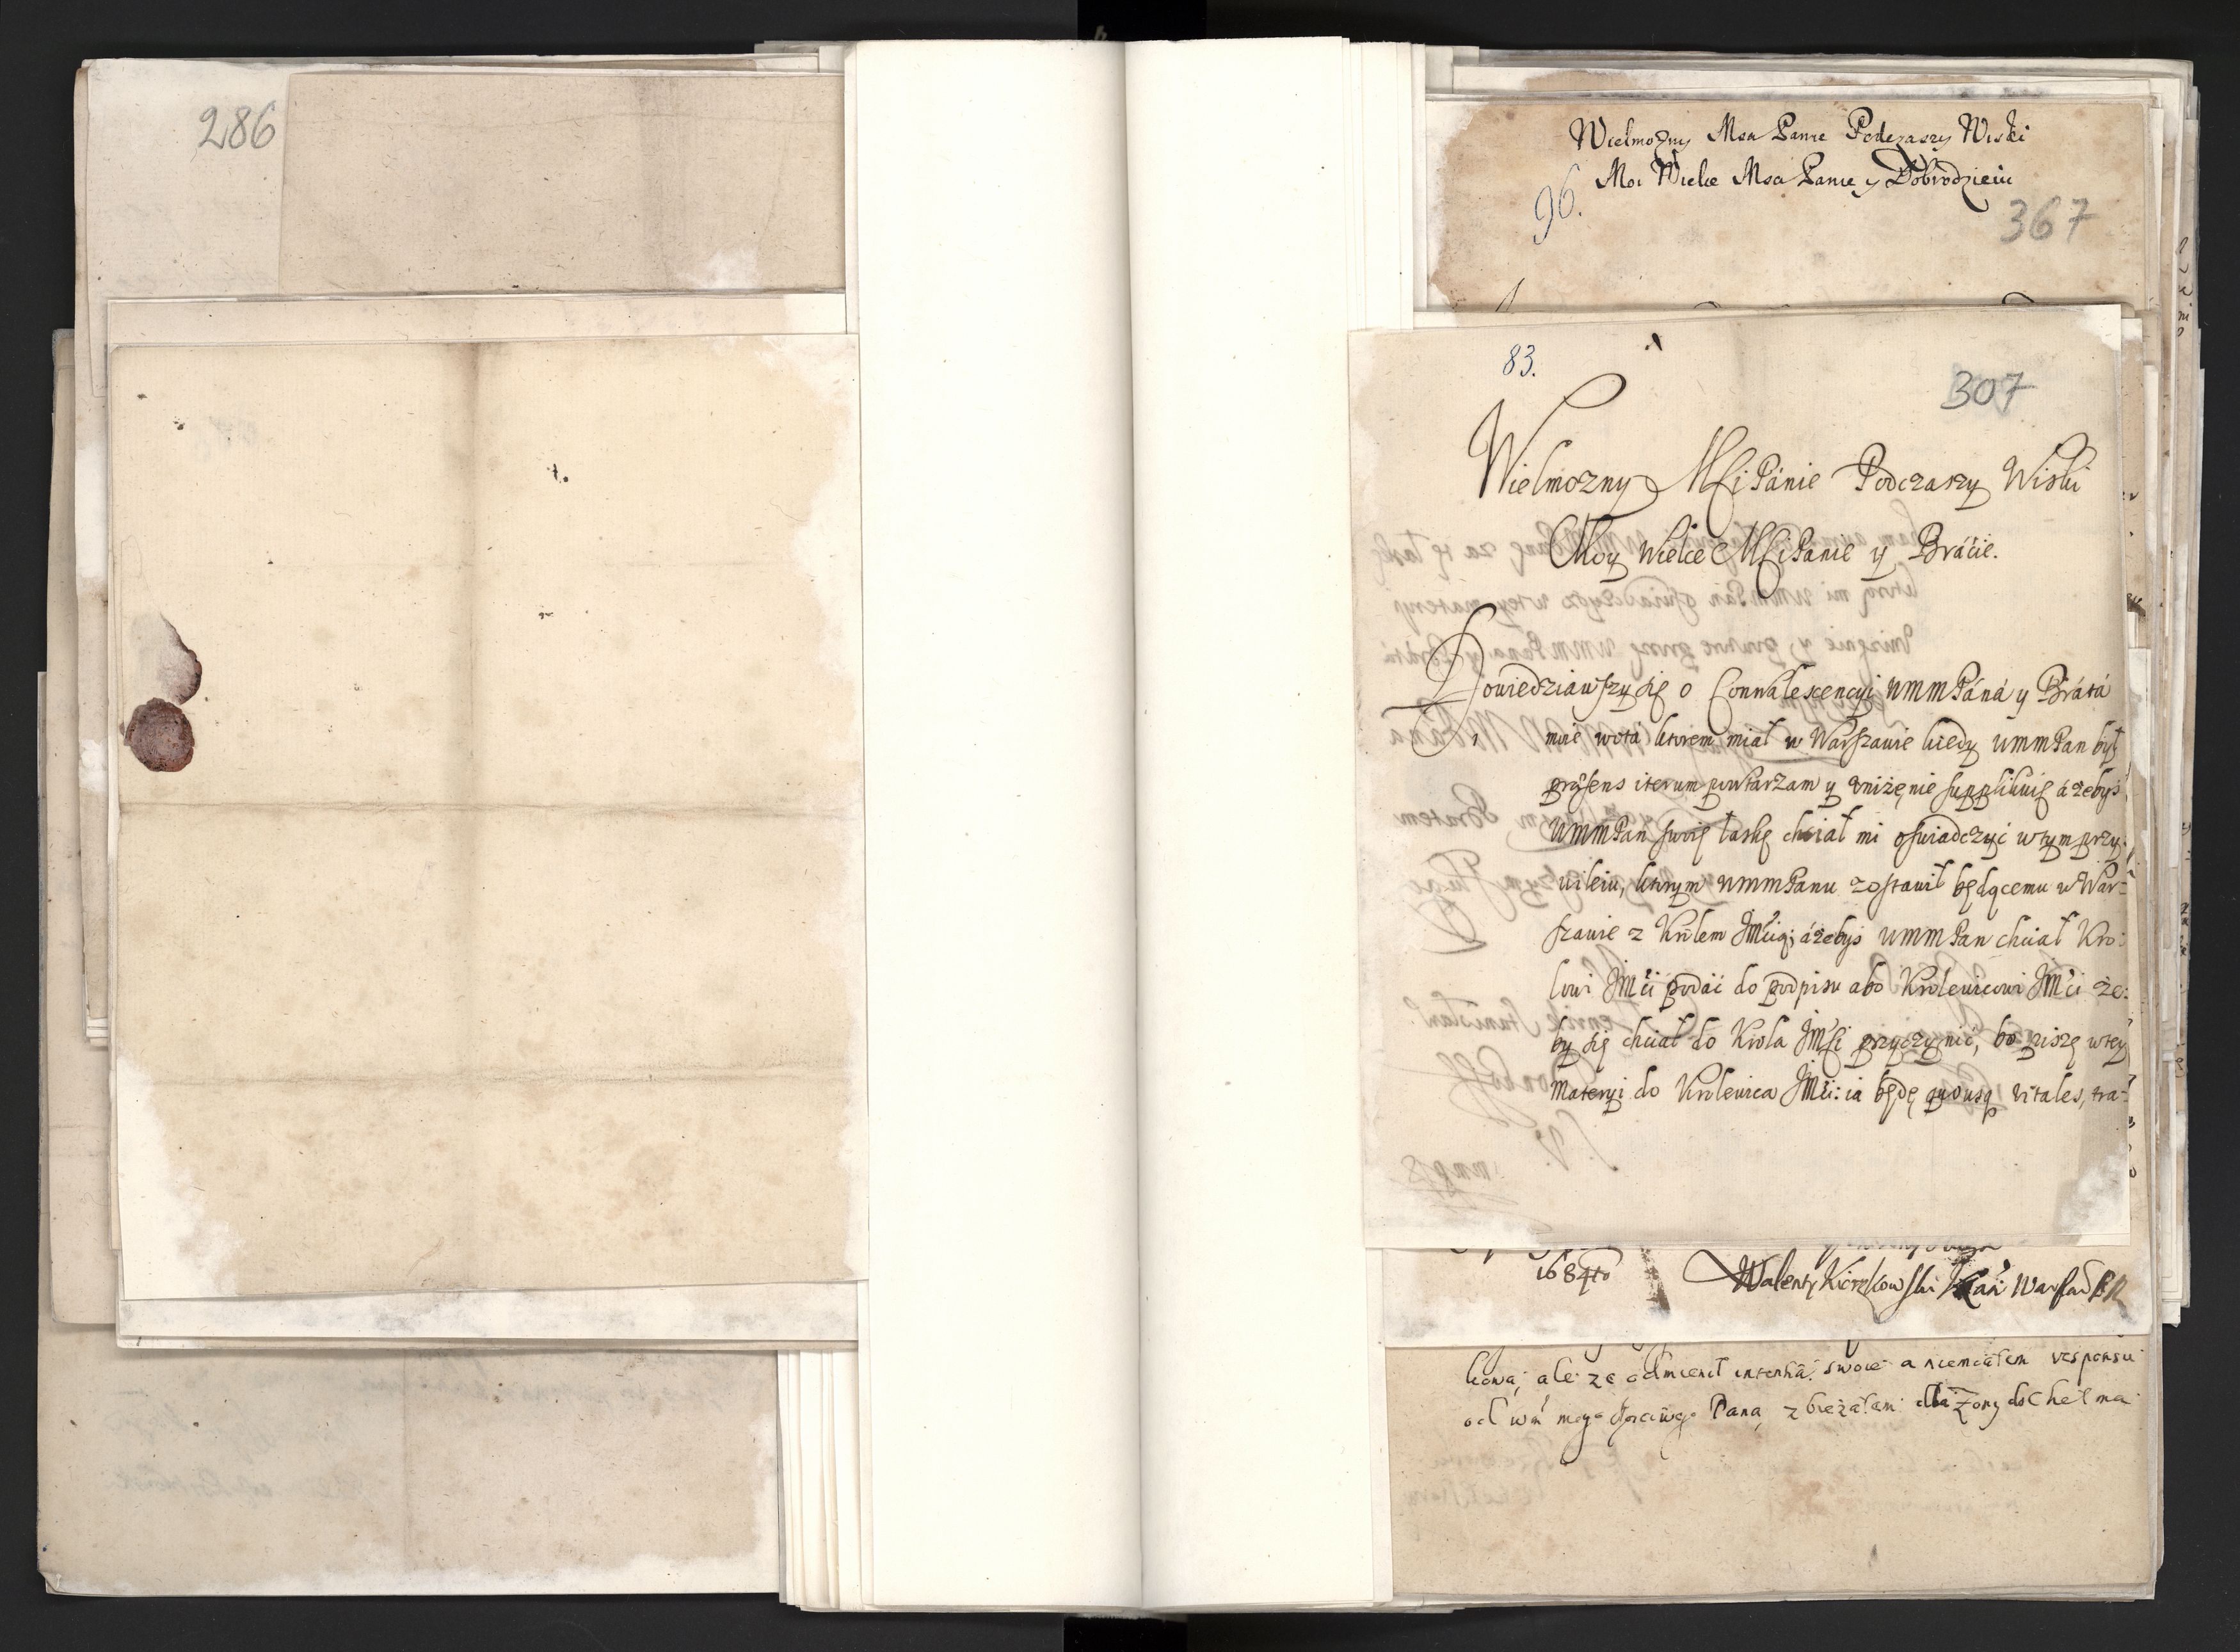 286
Wielmozny Msci Panie Podczaszy Wiski
Moi Wielce Msci Panie y Dobrodzieiu
96.
367
83.
307
Wielmozny MSci Pánie Podczaszy Wiski
Moy Wielce MSci Panie y Brácie.
Dowiedziawszy się o Conwalescencyi WMMPáná y Bráta
moie wota ktorem miał w Warszawie kiedy WMMPan był
præsens iterum powtarzam y vniżęnie supplikuię ážebys
WMMPan swoię łaskę chciał mi oswiadczyć w tym przy:
wileiu, ktorym WMMPanu zostawił będącemu w War=
szawie z Krolem JMcią; áżebys WMMPan chciał Kro:
lowi JMci podać do podpisu abo Krolewicowi JMci że:
by się chciał do Krola JMSci przyczynić, bo piszę w tey
materyi do Krolewica JMci: ia będę quousq vitales, tra=
1684to
Walenty Warsaw
ale ze odmienił swoie a niemiałem responsu
od mego Pana, zbieżałem dla Zony do Chełma